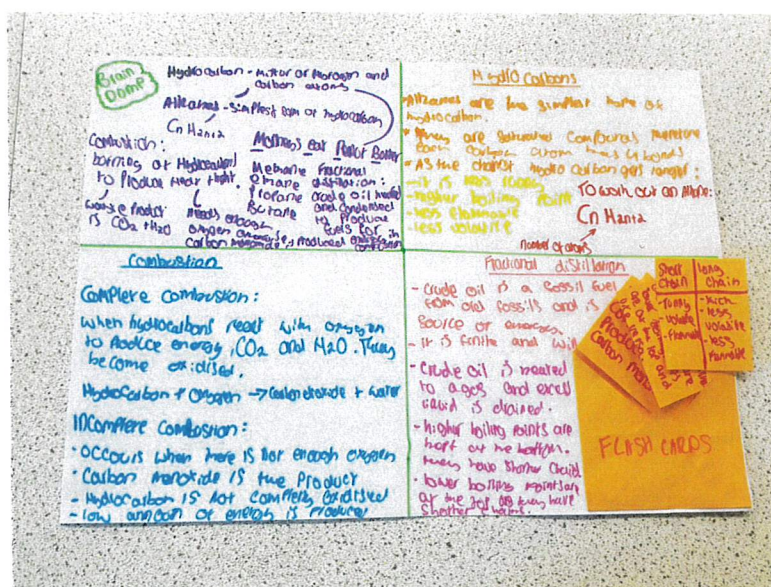 Brain
Dump
Hydrocarbon - of and
carbon atoms
Alkanes - simplest of hydrocarbon
Cn H2n+2
Mothers eat Peanut Butter
Combustion:
burning of Hydrocarbons
to Produce heat + light.
waste Product
is CO2 + H2O
Needs enough
oxygen
carbon monoxide is produced
Methane
ethane
Propane
Butane
Fractional
distillation:
crude oil heated
and condensed
to Produce
fuels for
Hydrocarbons
- Alkanes are the simplest of
hydrocarbon.
They are saturated therefore
each carbon atom has 4 bonds
- As the chain of hydrocarbon gets longer:
- it is less runny
- higher boiling Point
- less flammable
- less volatile
To work out an Alkane:
Cn H2n+2
number of atoms
Combustion
Complete combustion:
when hydrocarbons react with oxygen
to Produce energy, CO2 and H2O. They
become oxidised.
Hydrocarbon + oxygen → carbon dioxide + water
Incomplete combustion:
- occurs when there is not enough oxygen
- Carbon monoxide is the Product
- Hydrocarbon is not oxidised
- low of energy is produced
Fractional distillation
- Crude oil is a fossil fuel
from old fossils and is
source of
- it is finite and
- Crude oil is heated
to a gas and excess
liquid is drained.
- higher boiling Points are
at the bottom.
they have
- lower boiling
at the top as they have
shorter chains.
Short
chain
long
chain
- runny
- volatile
- thick
- less
volatile
- less
flammable
Produce
carbon
FLASH CARDS